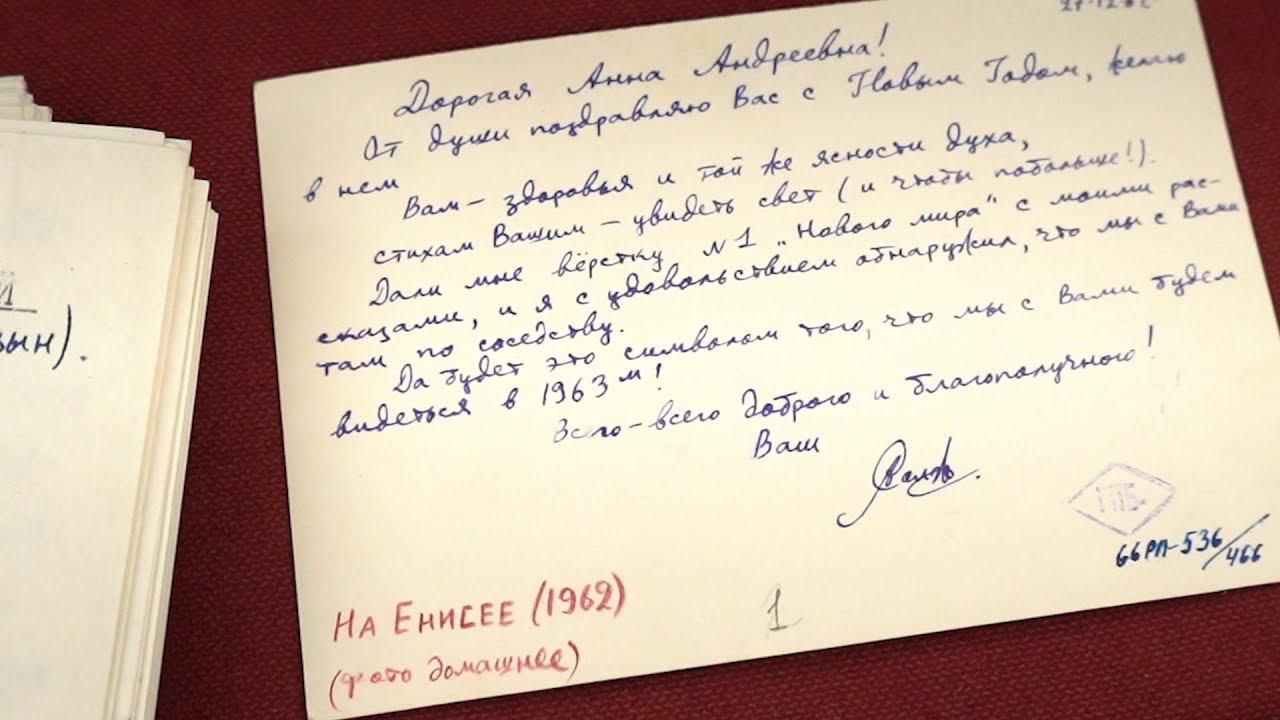 27-12-62
Дорогая Анна Андреевна!
От души поздравляю Вас с Новым Годом, желаю
в нем
Вам — здоровья и той же ясности духа,
стихам Вашим — увидеть свет (и чтобы побольше!).
Дали мне вёрстку №1 „Нового мира" с моими рас-
сказами, и я с удовольствием обнаружил, что мы с Вами
там по соседству.
Да будет это символом того, что мы с Вами будем
видеться в 1963 м!
Всего-всего доброго и благополучного!
Ваш
ГПБ
66РП-536/466
На Енисее (1962)
(фото домашнее)
1
Й
ын).